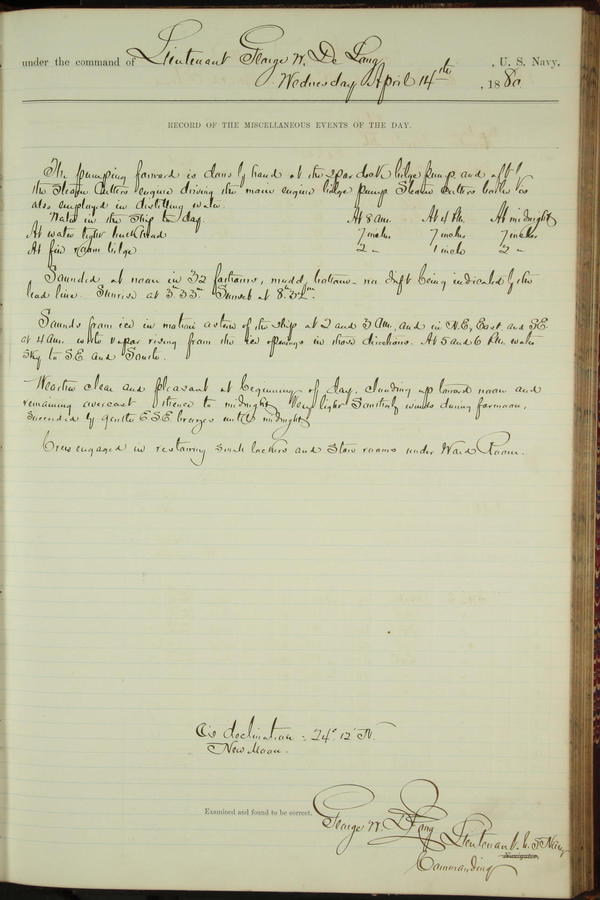 under the command of Lieutenant George W. De Long, U. S. Navy.
Wednesday April 14th, 1880
RECORD OF THE MISCELLANEOUS EVENTS OF THE DAY.
The pumping forward is done by hand at the spar deck bilge pump and aft by
the Steam Cutters engine driving the main engine bilge pump Steam Cutters boiler is
also employed in distilling water.
Water in the ship to day. At 8 am. At 4 Pm. At midnight
At water tight bulkhead 7 inches 7 inches 7 inches
At fire room bilge 2 " 1 inch 2 "
Sounded at noon in 32 fathoms, mudd bottom - no drift being indicated by the
lead line. Sunrise at 3.33. Sunset at 8.32
Sounds from ice in motion astern of the ship at 2 and 3 AM, and in N.E, East and SE
at 4 am. white vapor rising from the ice openings in those directions. At 5 and 6 Pm. water
sky to SE and South.
Weather clear and pleasant at beginning of day, clouding up toward noon and
remaining overcast thence to midnight Very light Southerly winds during forenoon,
succeeded by gentle ESE breezes until midnight
Crew engaged in restowing small lockers and store rooms under Ward Room.
declination = 24° 12' N.
New Moon.
Examined and found to be correct.
George W. De Long Lieutenant U.S Navy
Navigator.
Commanding